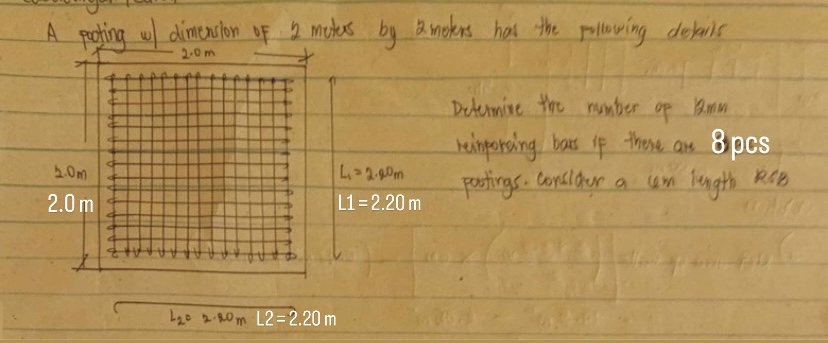 A footing w/ dimension of 2 meters by 2 meters has the following details
2.0m
Determine the number of 12mm
reinforcing bars if there are 8 pcs
footings. Consider a 6m length RSB
2.0m
2.0 m
L₁ = 2.20m
L1 = 2.20 m
L₂ = 2.20m L2 = 2.20 m